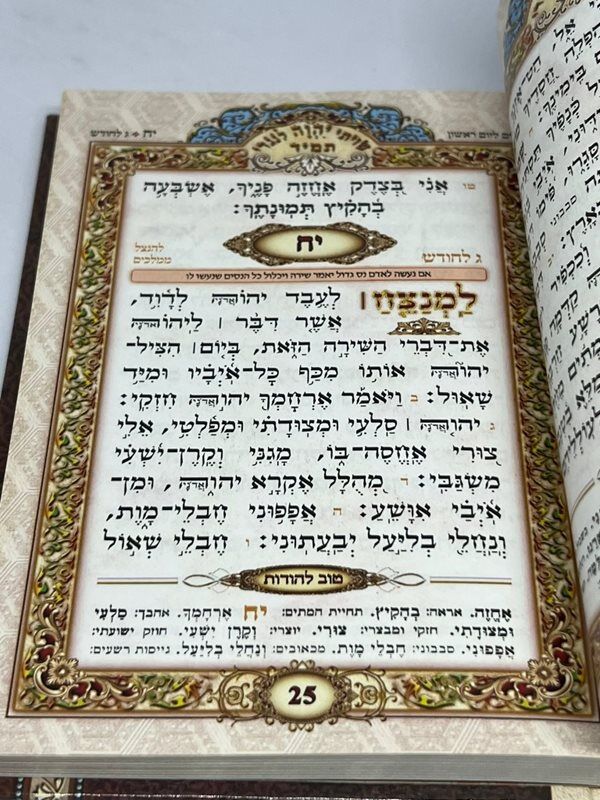 יח • ג לחודש
שויתי יהוה לנגדי
תמיד
ליום ראשון
טו אֲנִי בְּצֶדֶק אֶחֱזֶה פָנֶיךָ, אֶשְׂבְּעָה
בְהָקִיץ תְּמוּנָתֶךָ:
ג לחודש
יח
להנצל
ממלכים
אם נעשה לאדם נס גדול יאמר שירה ויכלול כל הנסים שנעשו לו
לַמְנַצֵּחַ | לְעֶבֶד יהוה לְדָוִד,
אֲשֶׁר דִּבֶּר | לַיהוה
אֶת־דִּבְרֵי הַשִּׁירָה הַזֹּאת, בְּיוֹם | הִצִּיל־
יהוה אוֹתוֹ מִכַּף כָּל־אֹיְבָיו וּמִיַּד
שָׁאוּל: ב וַיֹּאמַר אֶרְחָמְךָ יהוה חִזְקִי:
ג יהוה | סַלְעִי וּמְצוּדָתִי וּמְפַלְטִי, אֵלִי
צוּרִי אֶחֱסֶה־בּוֹ, מָגִנִּי וְקֶרֶן־יִשְׁעִי
מִשְׂגַּבִּי: ד מְהֻלָּל אֶקְרָא יהוה, וּמִן־
אֹיְבַי אִוָּשֵׁעַ: ה אֲפָפוּנִי חֶבְלֵי־מָוֶת,
וְנַחֲלֵי בְלִיַּעַל יְבַעֲתוּנִי: ו חֶבְלֵי שְׁאוֹל
טוב להודות
אֶחֱזֶה. אראה: בְהָקִיץ. תחיית המתים: יח אֶרְחָמְךָ. אהבך: סַלְעִי
וּמְצוּדָתִי. חזקי ומבצרי: צוּרִי. יוצרי: וְקֶרֶן יִשְׁעִי. חוזק ישועתי:
אֲפָפוּנִי. סבבוני: חֶבְלֵי מָוֶת. מכאובים: וְנַחֲלֵי בְלִיַּעַל. גייסות רשעים:
25